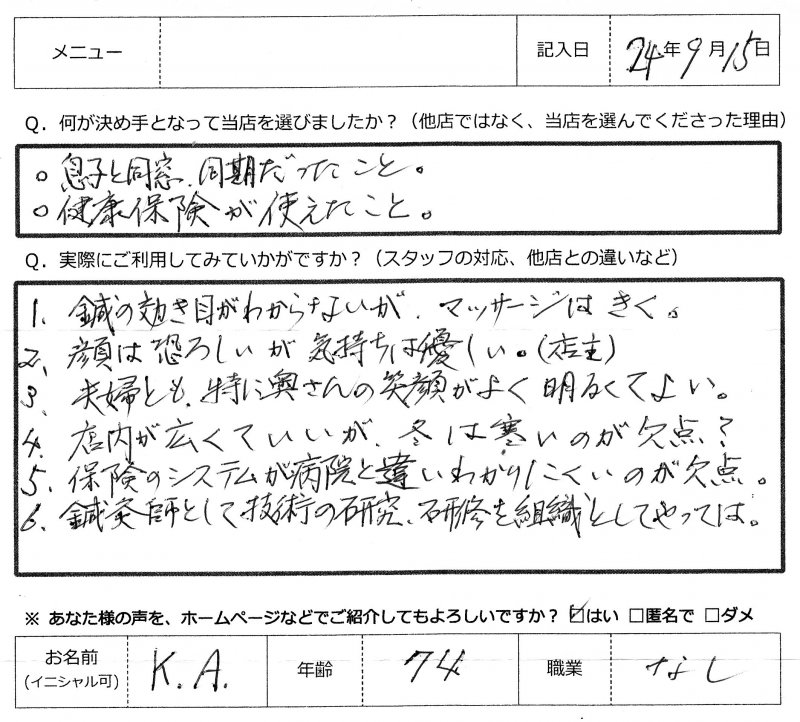 メニュー 記入日 24年9月15日
Q．何が決め手となって当店を選びましたか？（他店ではなく、当店を選んでくださった理由）
○息子と同窓、同期だったこと。
○健康保険が使えたこと。
Q．実際にご利用してみていかがですか？（スタッフの対応、他店との違いなど）
1、鍼の効き目がわからないが、マッサージはきく。
2、顔は恐ろしいが気持ちは優しい。(店主)
3、夫婦とも、特に奥さんの笑顔がよく明るくてよい。
4、店内が広くていいが、冬は寒いのが欠点？
5、保険のシステムが病院と違いわかりにくいのが欠点。
6、鍼灸師として技術の研究、研修を組織としてやっては。
※ あなた様の声を、ホームページなどでご紹介してもよろしいですか？ ☑はい □匿名で □ダメ
お名前 (イニシャル可) K.A. 年齢 74 職業 なし